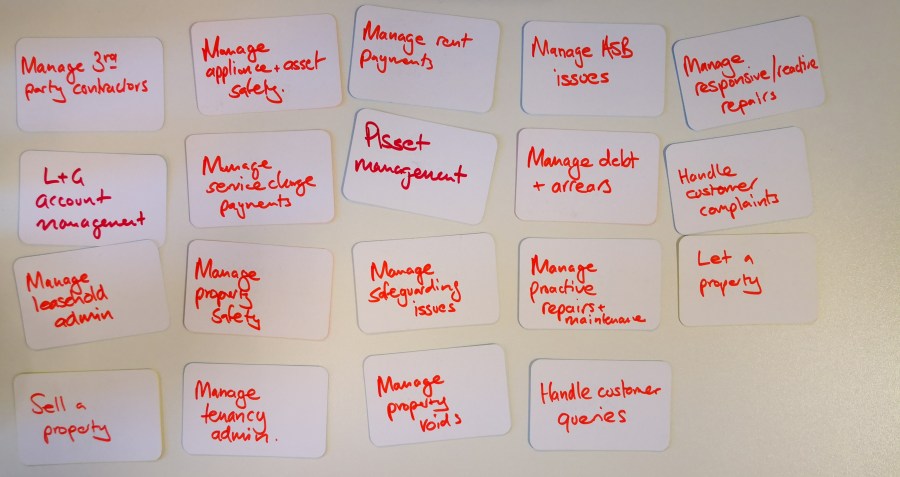 Manage 3rd
party contractors
Manage
appliance + asset
safety.
Manage rent
payments
Manage ASB
issues
Manage
responsive/reactive
repairs
L+G
account
management
Manage
service charge
payments
Asset
management
Manage debt
+ arrears
Handle
customer
complaints
Manage
leasehold
admin
Manage
property
safety
Manage
safeguarding
issues
Manage
proactive
repairs +
maintenance
Let a
property
Sell a
property
Manage
tenancy
admin.
Manage
property
voids
Handle customer
queries